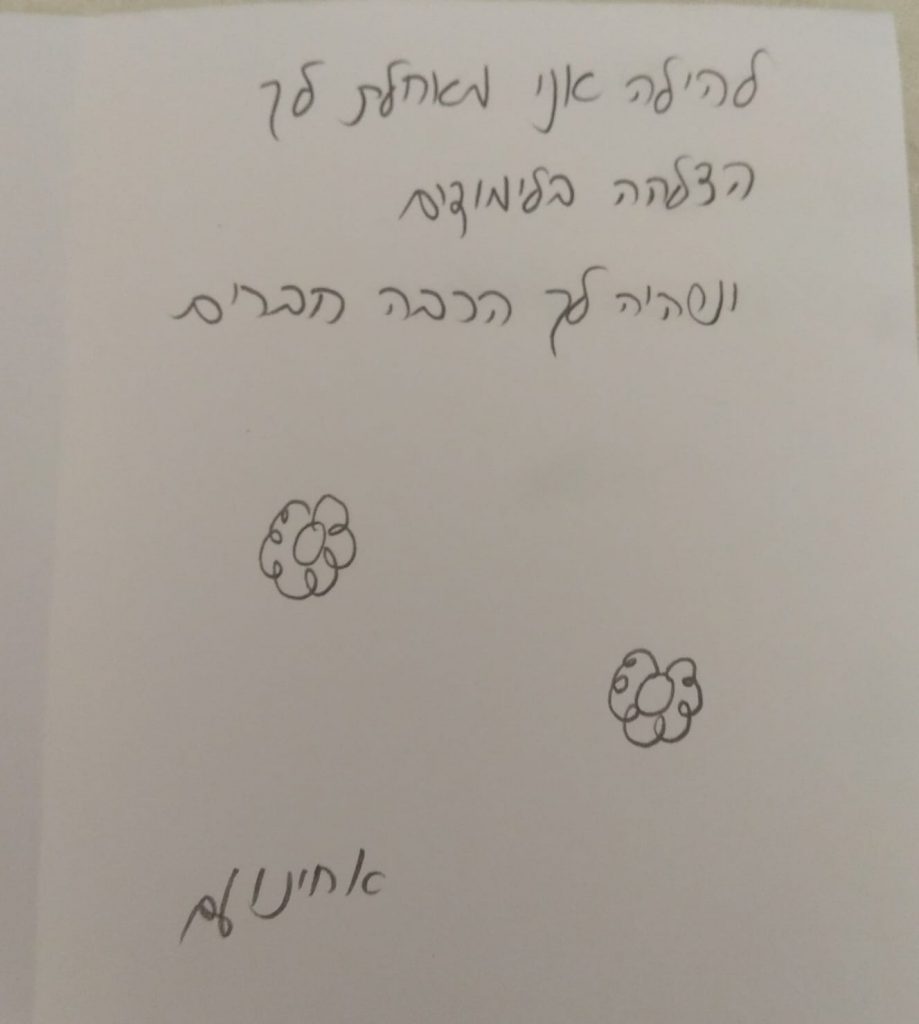 להילה אני מאחלת לך
הצלחה בלימודים
ונשהיה לך הרבה חברים
אחינועם